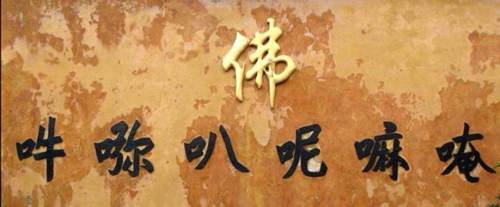 佛
唵嘛呢叭吽